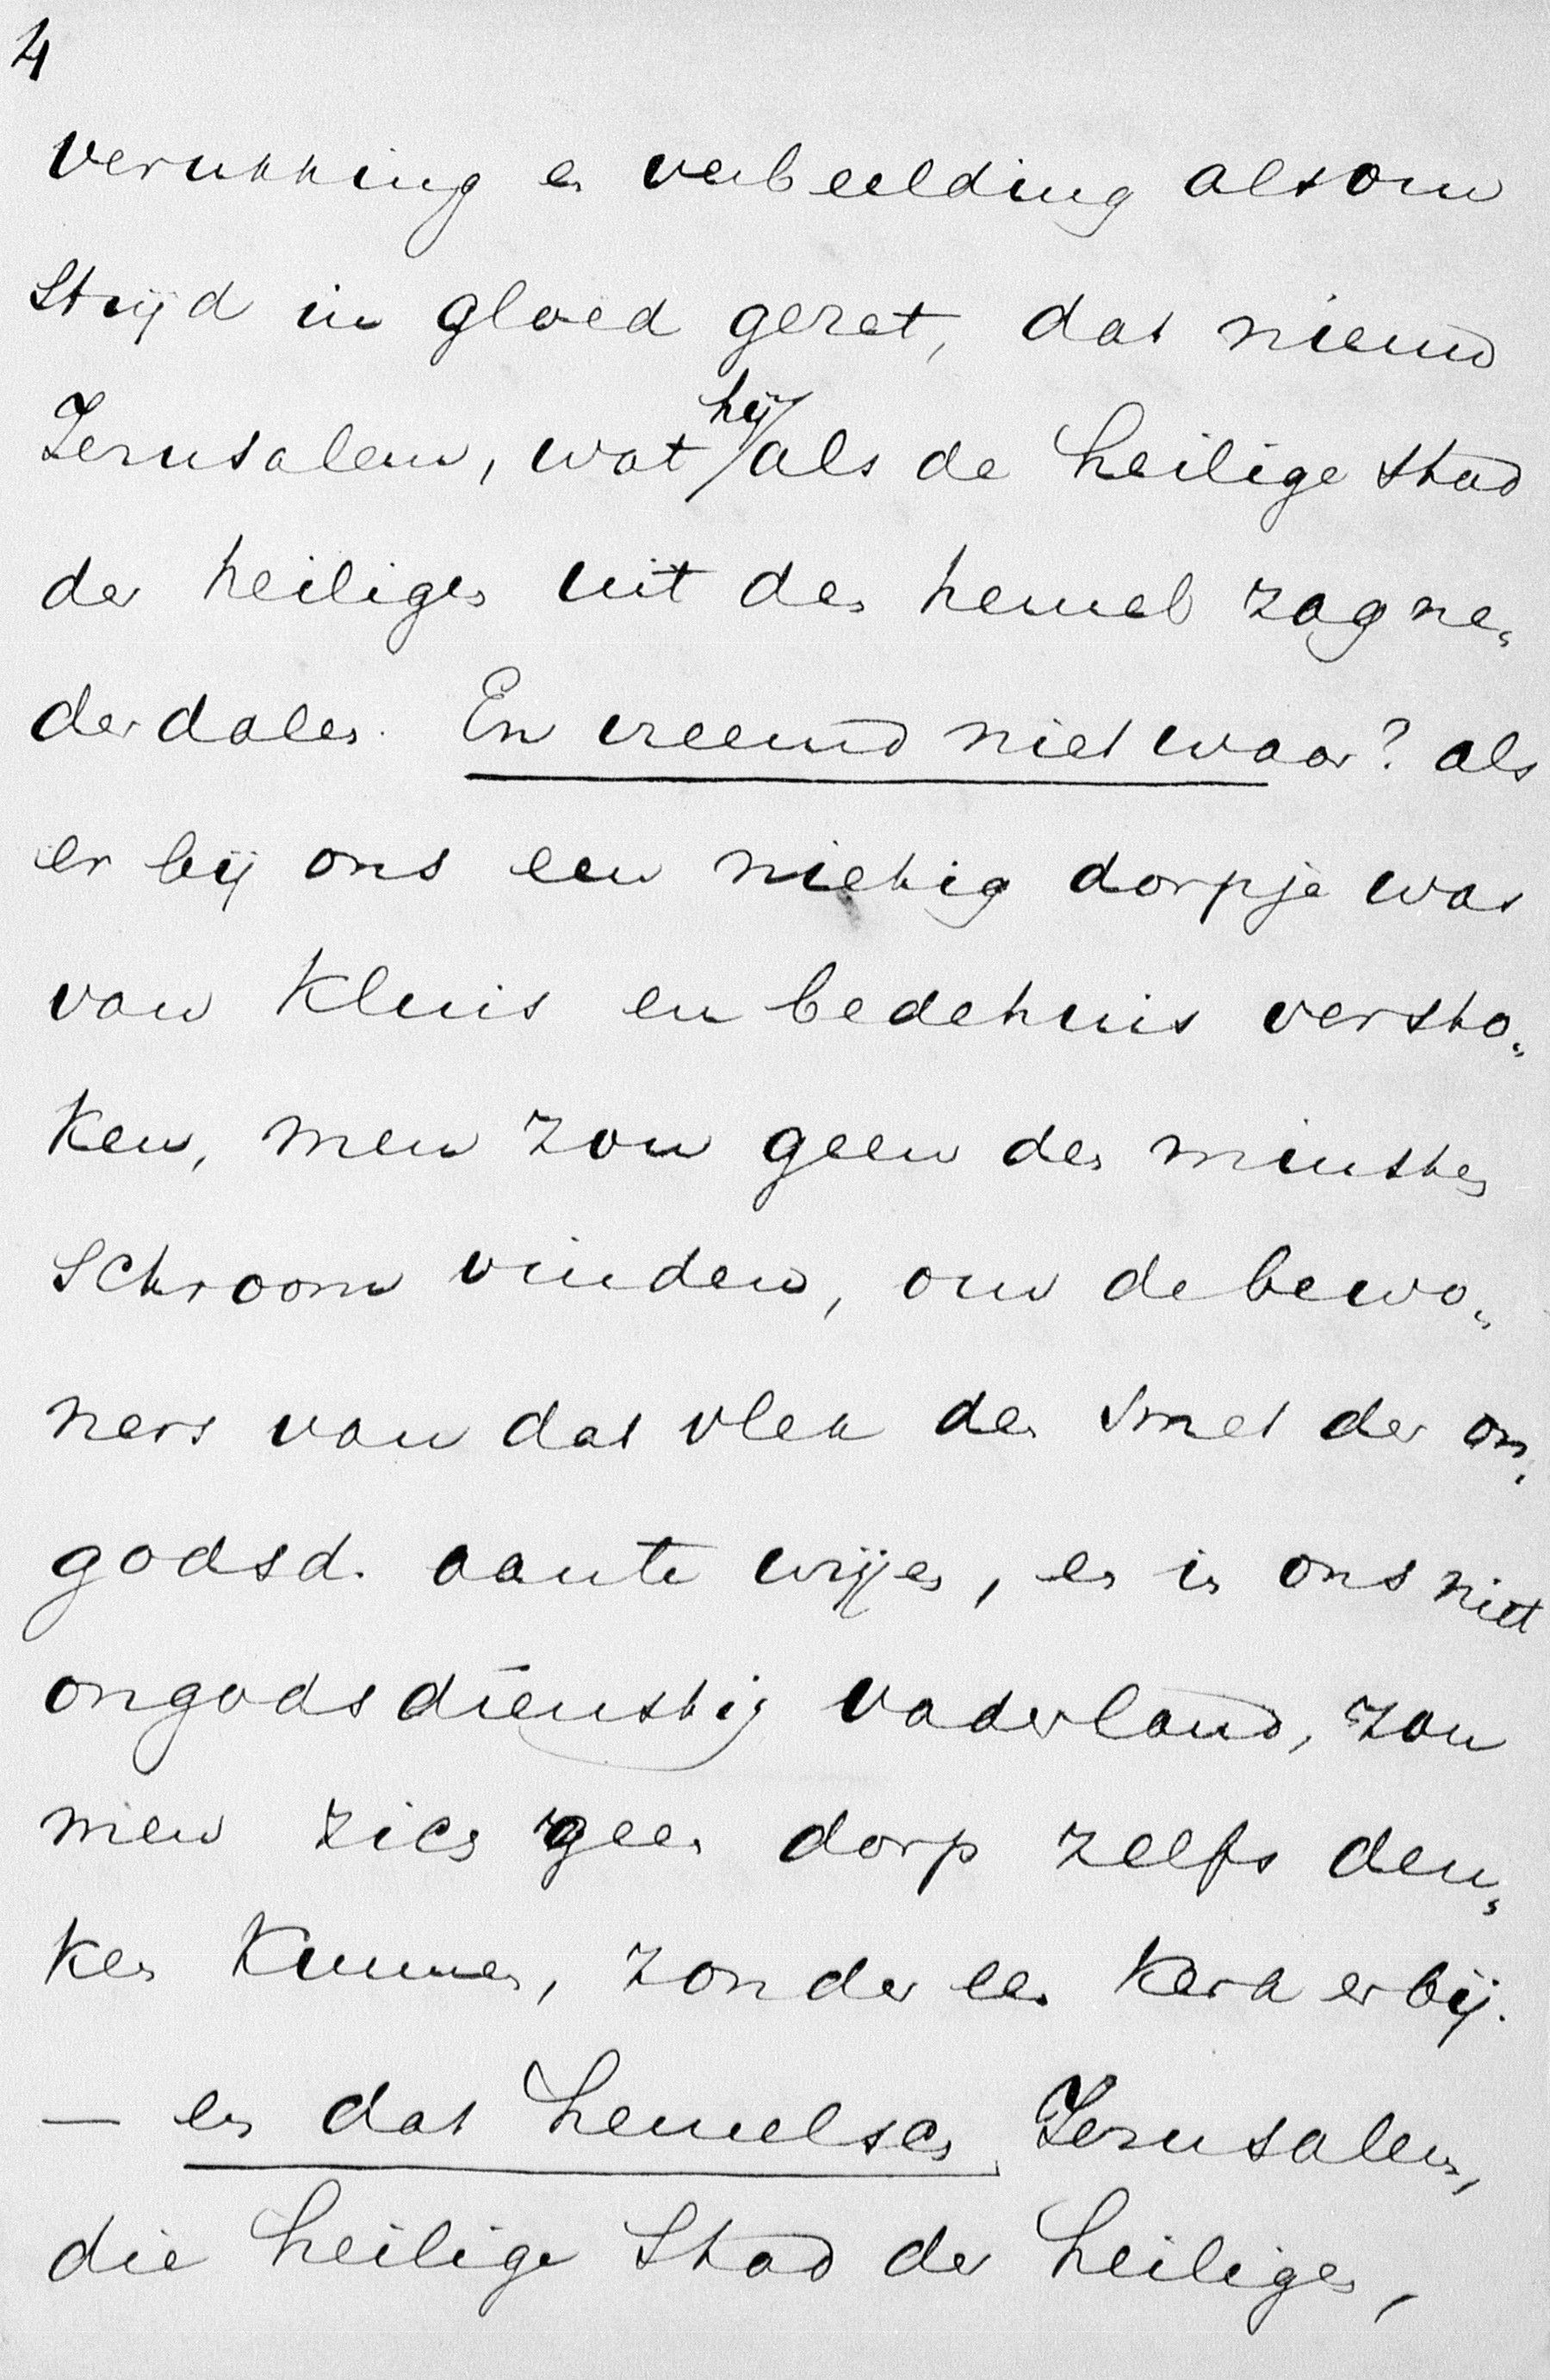 4
verukking en verbeelding alsom
strijd in gloed gezet, dat nieuw
Jerusalem, wat hij als de heilige stad
der heiligen uit den hemel zag ne„
derdalen. En vreemd niet waar? als
er bij ons een nietig dorpje was
van kluis en bedehuis versto„
ken, men zou geen den minsten
schroom vinden, om de bewo„
ners van dat vlek den smet der on„
godsd. aan te wrijven, en in ons niet
ongodsdienstig vaderland, zou
men zich geen dorp zelfs den„
ken kunnen, zonder een kerk erbij.
— en dat hemelsch Jerusalem,
die heilige Stad der heiligen,